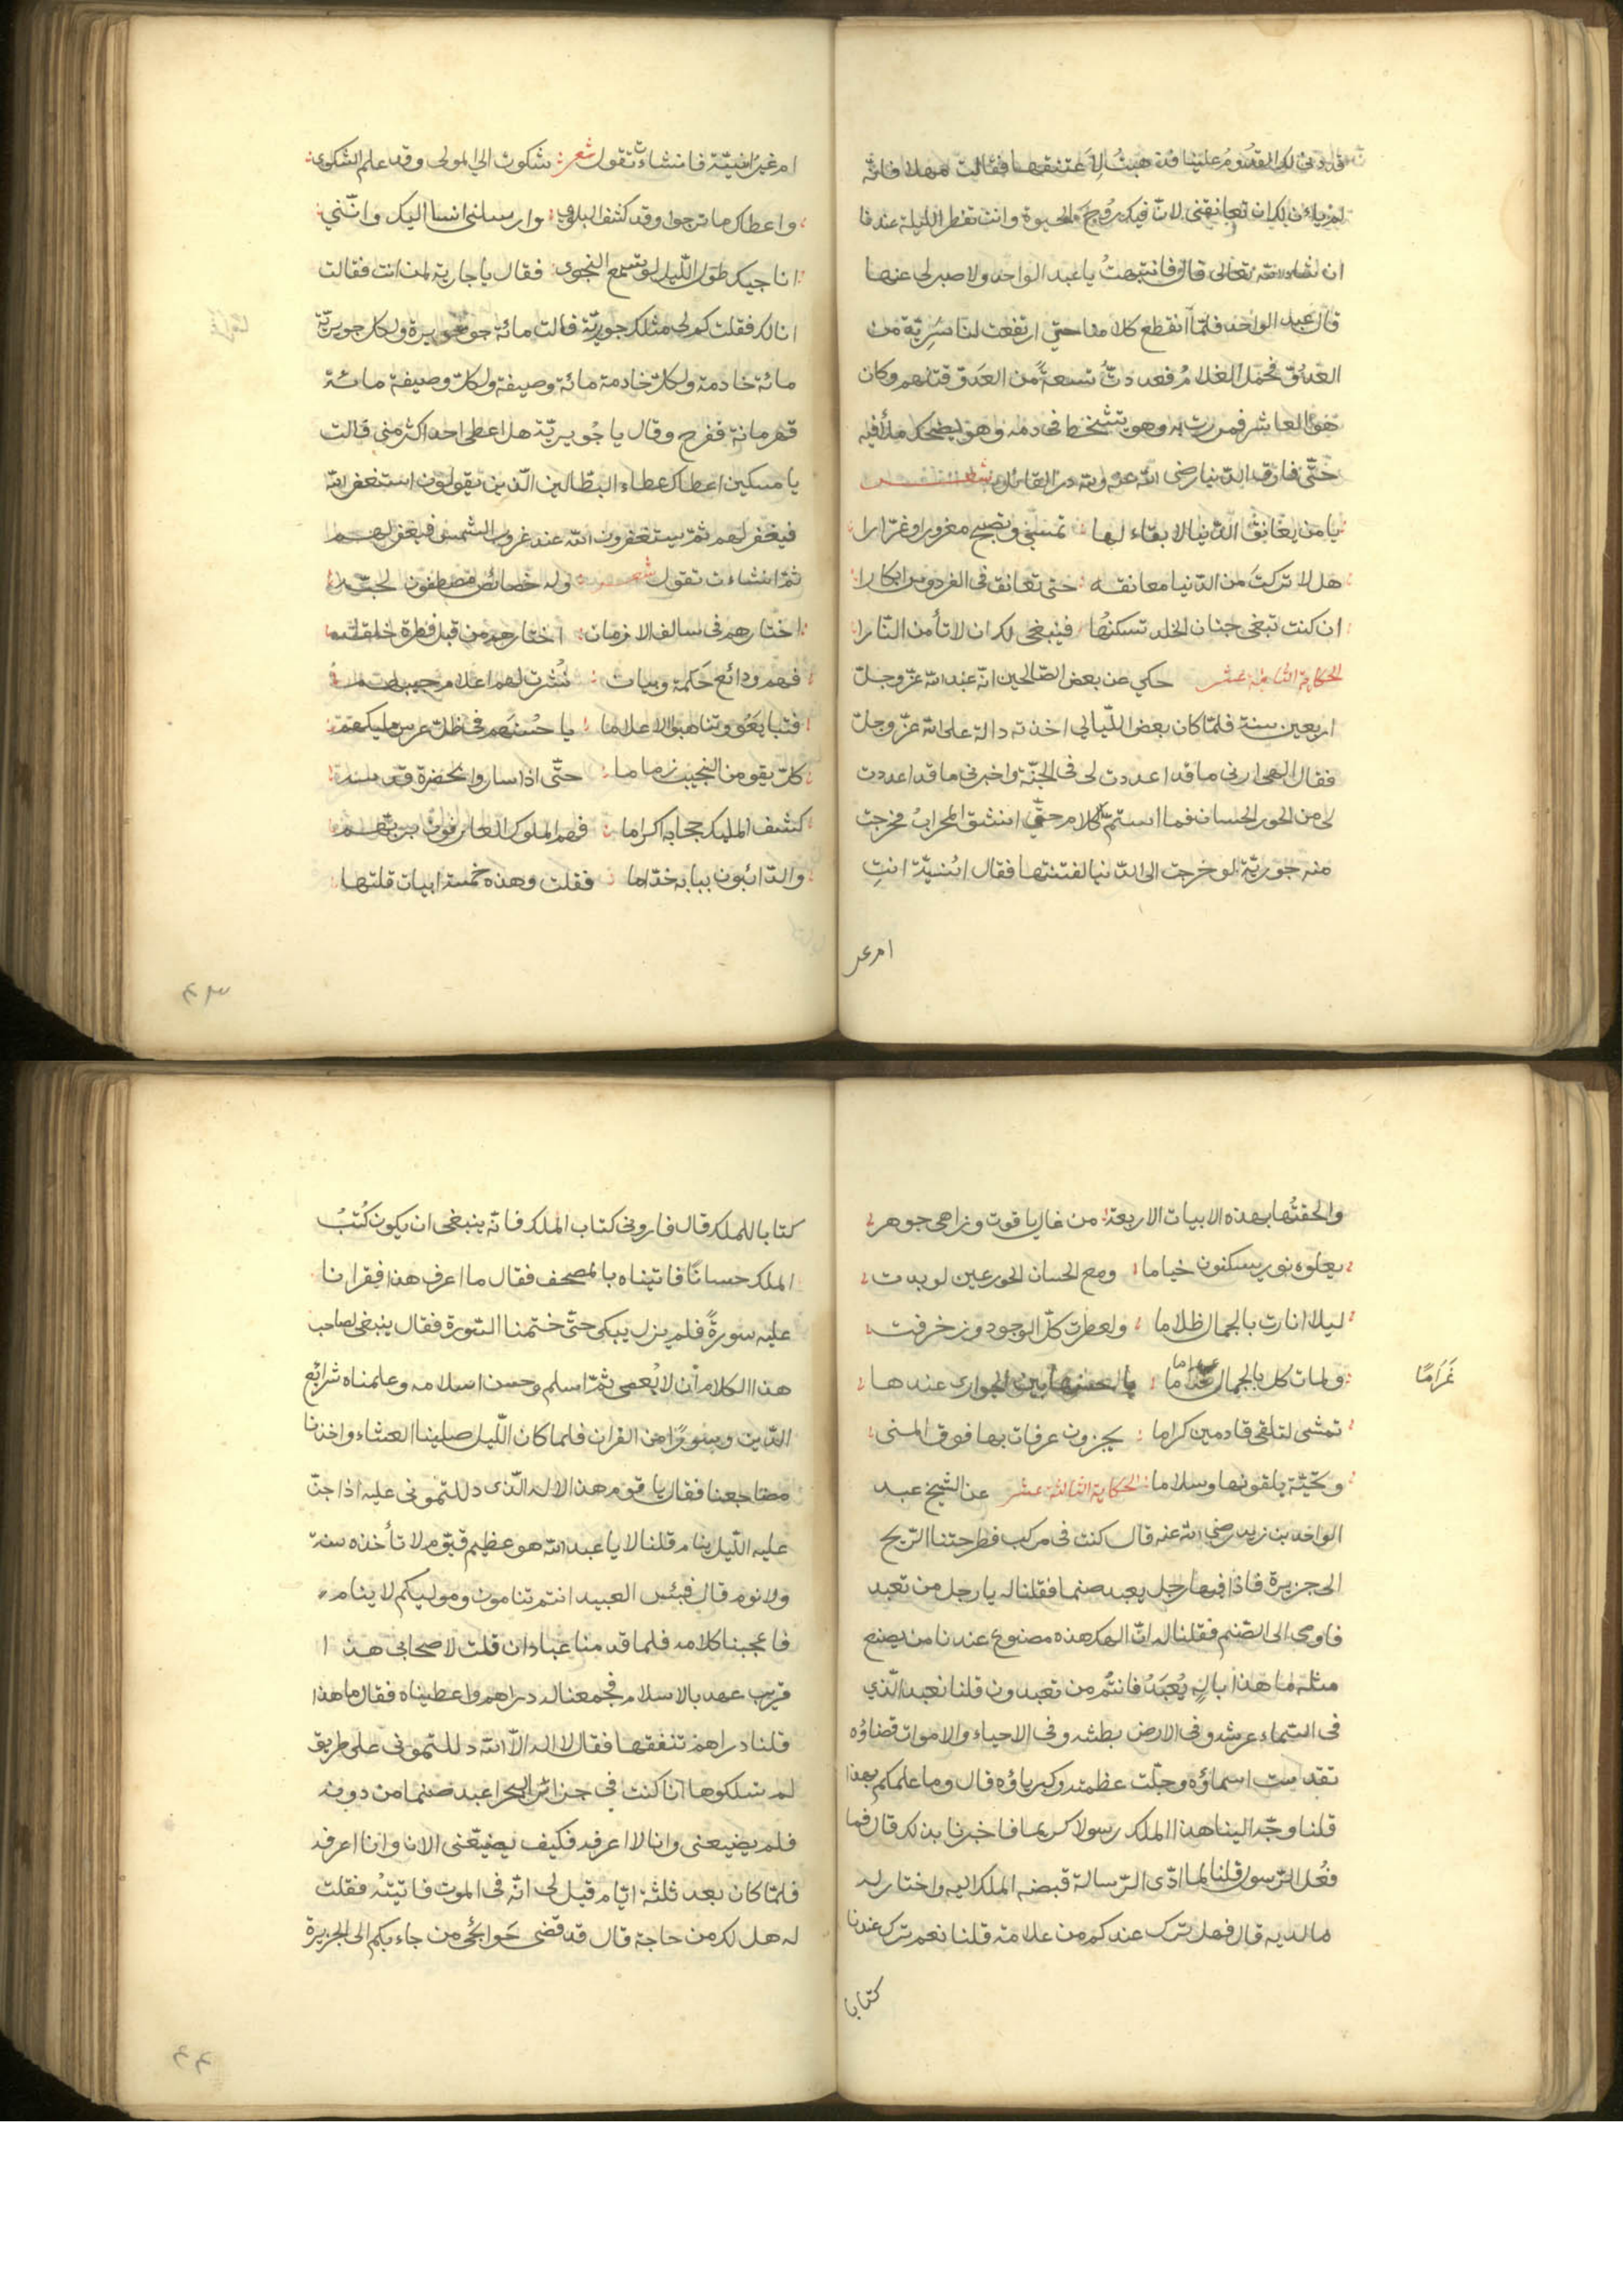 قد دنى لك القدوم علينا قد هبت لاعتنقها فقالت مهلا فانه
لم يأن لك ان تعانقنى لان فيك روح الحيوة وانت تفطر الليلة عندنا
ان شاء الله تعالى قال فانتبهت يا عبد الواحد ولا صبر لى عنها
قال عبد الواحد فلما انقطع كلامنا حتى ارتفعت لنا سرية من
العدو فحمل الغلام فعددت تسعة من العدو قتلهم وكان
هو العاشر فمررت به وهو يتشحط فى دمه وهو يضحك ملأ فيه
حتى فارق الدنيا رضى الله عنه ولله در القائل شعر
يا من يعانق الدنيا لا بقاء لها تمسى وتصبح مغرورا وغرارا
هل لا تركت من الدنيا معانقة حتى تعانق فى الفردوس ابكارا
ان كنت تبغى جنان الخلد تسكنها فينبغى لك ان لا تأمن النارا
الحكاية الثانية عشر حكي عن بعض الصالحين انه عبد الله عز وجل
اربعين سنة فلما كان بعض الليالى اخذته دالة على الله عز وجل
فقال الهى ارنى ما قد اعددت لى فى الجنة واخبرنى ما قد اعددت
لى من الحور الحسان فما استتم كلامه حتى انشق المحراب فخرجت
منه جورية لو خرجت الى الدنيا لفتنتها فقال انسية انت
ام غير
ام غير انسية فانشاءت تقول شعر شكوت الى المولى وقد علم الشكوى
واعطاك ما ترجوا وقد كشف البلوى وارسلنى انسا اليك واننى
اناجيك طول الليل لو تسمع النجوى فقال يا جارية لمن انت فقالت
انا لك فقلت كم لى مثلك جورية قالت مائة جويرة ولكل جويرية
مائة خادمة ولكل خادمة مائة وصيفة ولكل وصيفة مائة
قهرمانة ففرح وقال يا جويرية هل اعطى احد اكثر منى قالت
يا مسكين اعطاك عطاء البطالين الذين يقولون استغفر الله
فيغفر لهم ثم يستغفرون الله عند غروب الشمس فيغفر لهم
ثم انشاءت تقول شعر وله خصائص مصطفون لحبه
اختارهم فى سالف الازمان اختارهم من قبل فطرة خلقه
فهم ودائع حكمة وبيان نشرت لهم اعلام
فتبايعو وتناهبوا الاعلاما يا حسنهم فى ظل عرش مليكهم
كل يقو من النجيب زماما حتى اذا ساروا بحضرة
كشف المليك حجابه اكراما فهم الملوك العارفون بربهم
والدائبون ببابه خداما فقلت وهذه خمسة ابيات قلتها
٤٣
والحقتها بهذه الابيات الاربعة من غال ياقوت وزاهى جوهر
يعلوه نور يسكنون خياما ومع الحسان الحور عين لو بدت
ليلا انارت بالجمال ظلاما ولعطرت كل الوجود وزخرفت
ولمات كل بالجمال غراما يا حسنها بين الجوارى عندها
غراما
تمشى لتلقى قادمين كراما يجزون عرفات بها فوق المنى
وتحية يلقونها وسلاما الحكاية الثالثة عشر عن الشيخ عبد
الواحد بن زيد رضى الله عنه قال كنت فى مركب فطرحتنا الريح
الى جزيرة فاذا فيها رجل يعبد صنما فقلنا له يا رجل من تعبد
فاومى الى الصنم فقلنا له ان الهك هذه مصنوع عندنا من يصنع
مثله ما هذا باله يعبد فانتم من تعبدون قلنا نعبد الذي
فى السماء عرشه وفى الارض بطشه وفى الاحياء والاموات قضاؤه
تقدست اسماؤه وجلت عظمته وكبرياؤه قال وما علمكم بهذا
قلنا وجه الينا هذا الملك رسولا كريما فاخبرنا بذلك قال فما
فعل الرسول قلنا لما ادى الرسالة قبضه الملك اليه واختار له
ما لديه قال فهل ترك عندكم من علامة قلنا نعم ترك عندنا
كتابا
كتابا للملك قال فارونى كتاب الملك فانه ينبغى ان يكون كتب
الملك حسانا فاتيناه بالمصحف فقال ما اعرف هذا فقرانا
عليه سورة فلم يزل يبكى حتى ختمنا السورة فقال ينبغى لصاحب
هذا الكلام ان لا يعصى ثم اسلم وحسن اسلامه وعلمناه شرايع
الدين وسورا من القران فلما كان الليل صلينا العشاء واخذنا
مضاجعنا فقال يا قوم هذا الاله الذى دللتمونى عليه اذا جن
عليه الليل ينام قلنا لا يا عبد الله هو عظيم قيوم لا تأخذه سنة
ولا نوم قال فبئس العبيد انتم تنامون وموليكم لا ينام
فاعجبنا كلامه فلما قدمنا عبادان قلت لاصحابى هذا
قريب عهد بالاسلام فجمعنا له دراهم واعطيناه فقال ما هذا
قلنا دراهم تنفقها فقال لا اله الا الله دللتمونى على طريق
لم تسلكوها انا كنت فى جزائر البحر اعبد صنما من دونه
فلم يضيعنى وانا لا اعرفه فكيف يضيعنى الان وانا اعرفه
فلما كان بعد ثلثة ايام قيل لى انه فى الموت فاتيته فقلت
له هل لك من حاجة قال قد قضى حوائجى من جاء بكم الى الجزيرة
٤٤